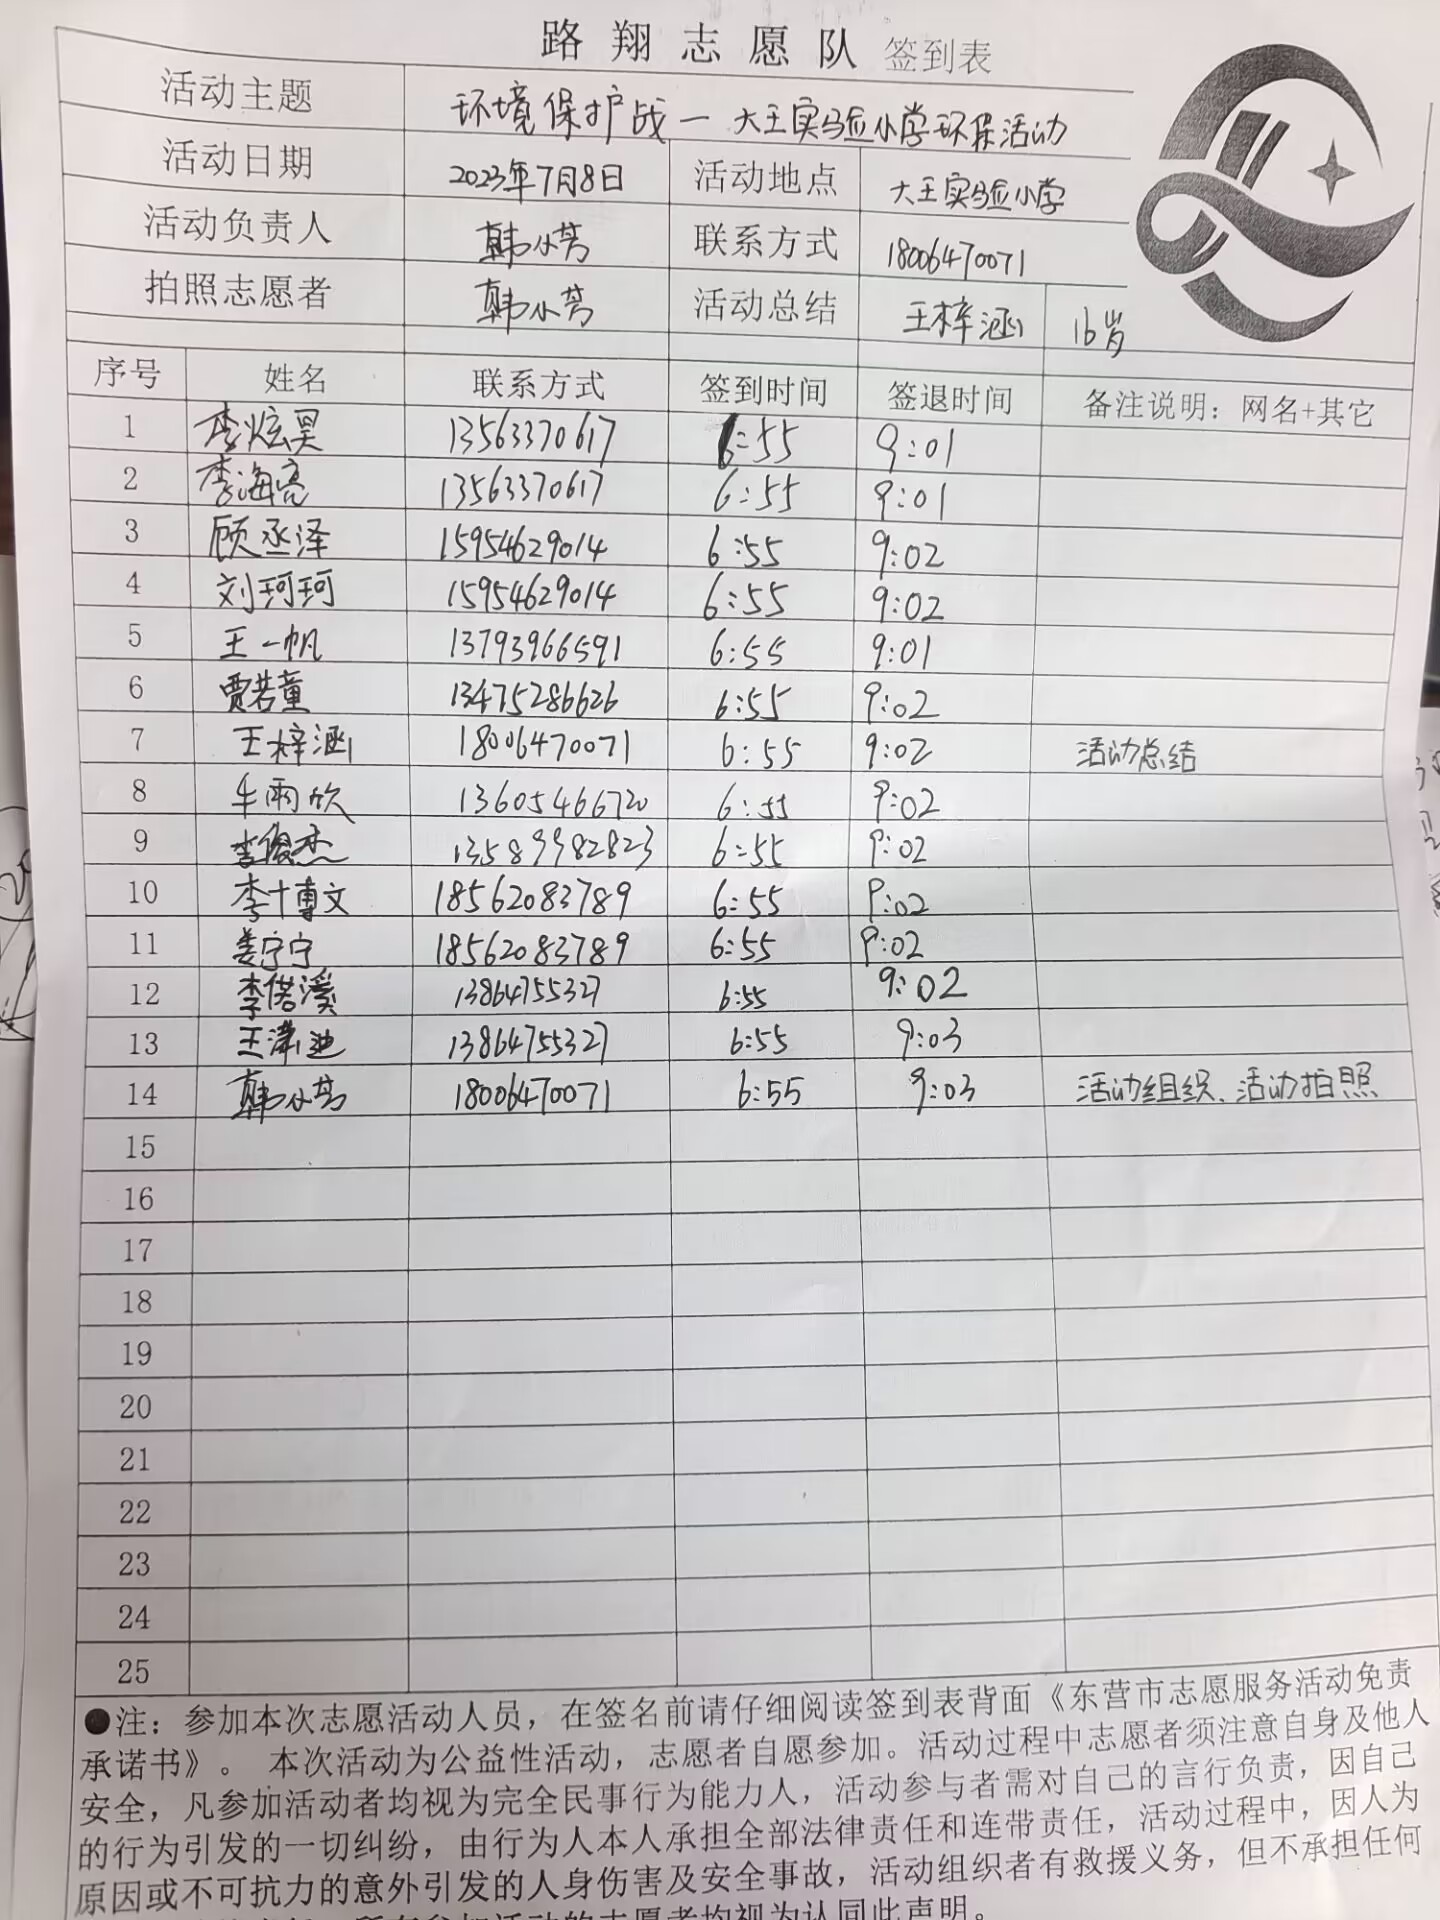 路翔志愿队 签到表
活动主题 环境保护战一大王实验小学环保活动
活动日期 2023年7月8日 活动地点 大王实验小学
活动负责人 韩小芳 联系方式 18006470071
拍照志愿者 韩小芳 活动总结 王梓涵 16岁
序号 姓名 联系方式 签到时间 签退时间 备注说明：网名+其它
1 李炫昊 13563370617 6:55 9:01
2 李海亮 13563370617 6:55 9:01
3 顾丞泽 15954629014 6:55 9:02
4 刘珂珂 15954629014 6:55 9:02
5 王一帆 13793966591 6:55 9:01
6 贾若童 13475286626 6:55 9:02
7 王梓涵 18006470071 6:55 9:02 活动总结
8 牛雨欣 13605466720 6:55 9:02
9 李俊杰 13589982823 6:55 9:02
10 李十博文 18562083789 6:55 9:02
11 姜宁宁 18562083789 6:55 9:02
12 李偌溪 13864755327 6:55 9:02
13 王潇迪 13864755327 6:55 9:03
14 韩小芳 18006470071 6:55 9:03 活动组织、活动拍照
15
16
17
18
19
20
21
22
23
24
25
●注：参加本次志愿活动人员，在签名前请仔细阅读签到表背面《东营市志愿服务活动免责
承诺书》。 本次活动为公益性活动，志愿者自愿参加。活动过程中志愿者须注意自身及他人
安全，凡参加活动者均视为完全民事行为能力人，活动参与者需对自己的言行负责，因自己
的行为引发的一切纠纷，由行为人本人承担全部法律责任和连带责任，活动过程中，因人为
原因或不可抗力的意外引发的人身伤害及安全事故，活动组织者有救援义务，但不承担任何
所有参加活动的志愿者均视为认同此声明。